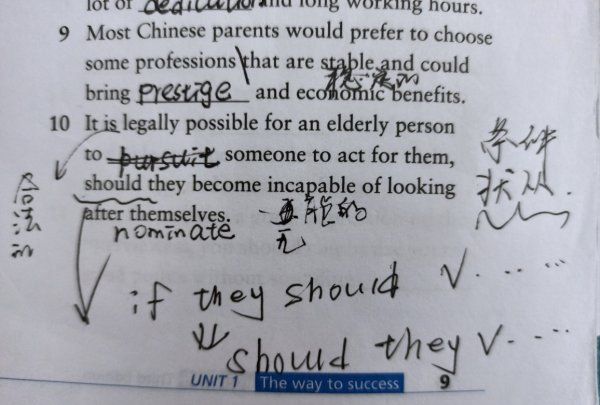 lot of dedication and long working hours.
9 Most Chinese parents would prefer to choose
some professions that are stable and could
稳定的
bring prestige and economic benefits.
10 It is legally possible for an elderly person
to pursuit someone to act for them,
should they become incapable of looking
after themselves.
nominate
无能的
合法的
条件
状从.
if they should V. .. ...
should they V. ....
UNIT 1 The way to success 9